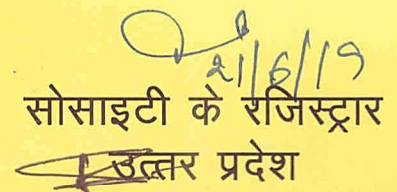 21/6/19
सोसाइटी के रजिस्ट्रार
उत्तर प्रदेश